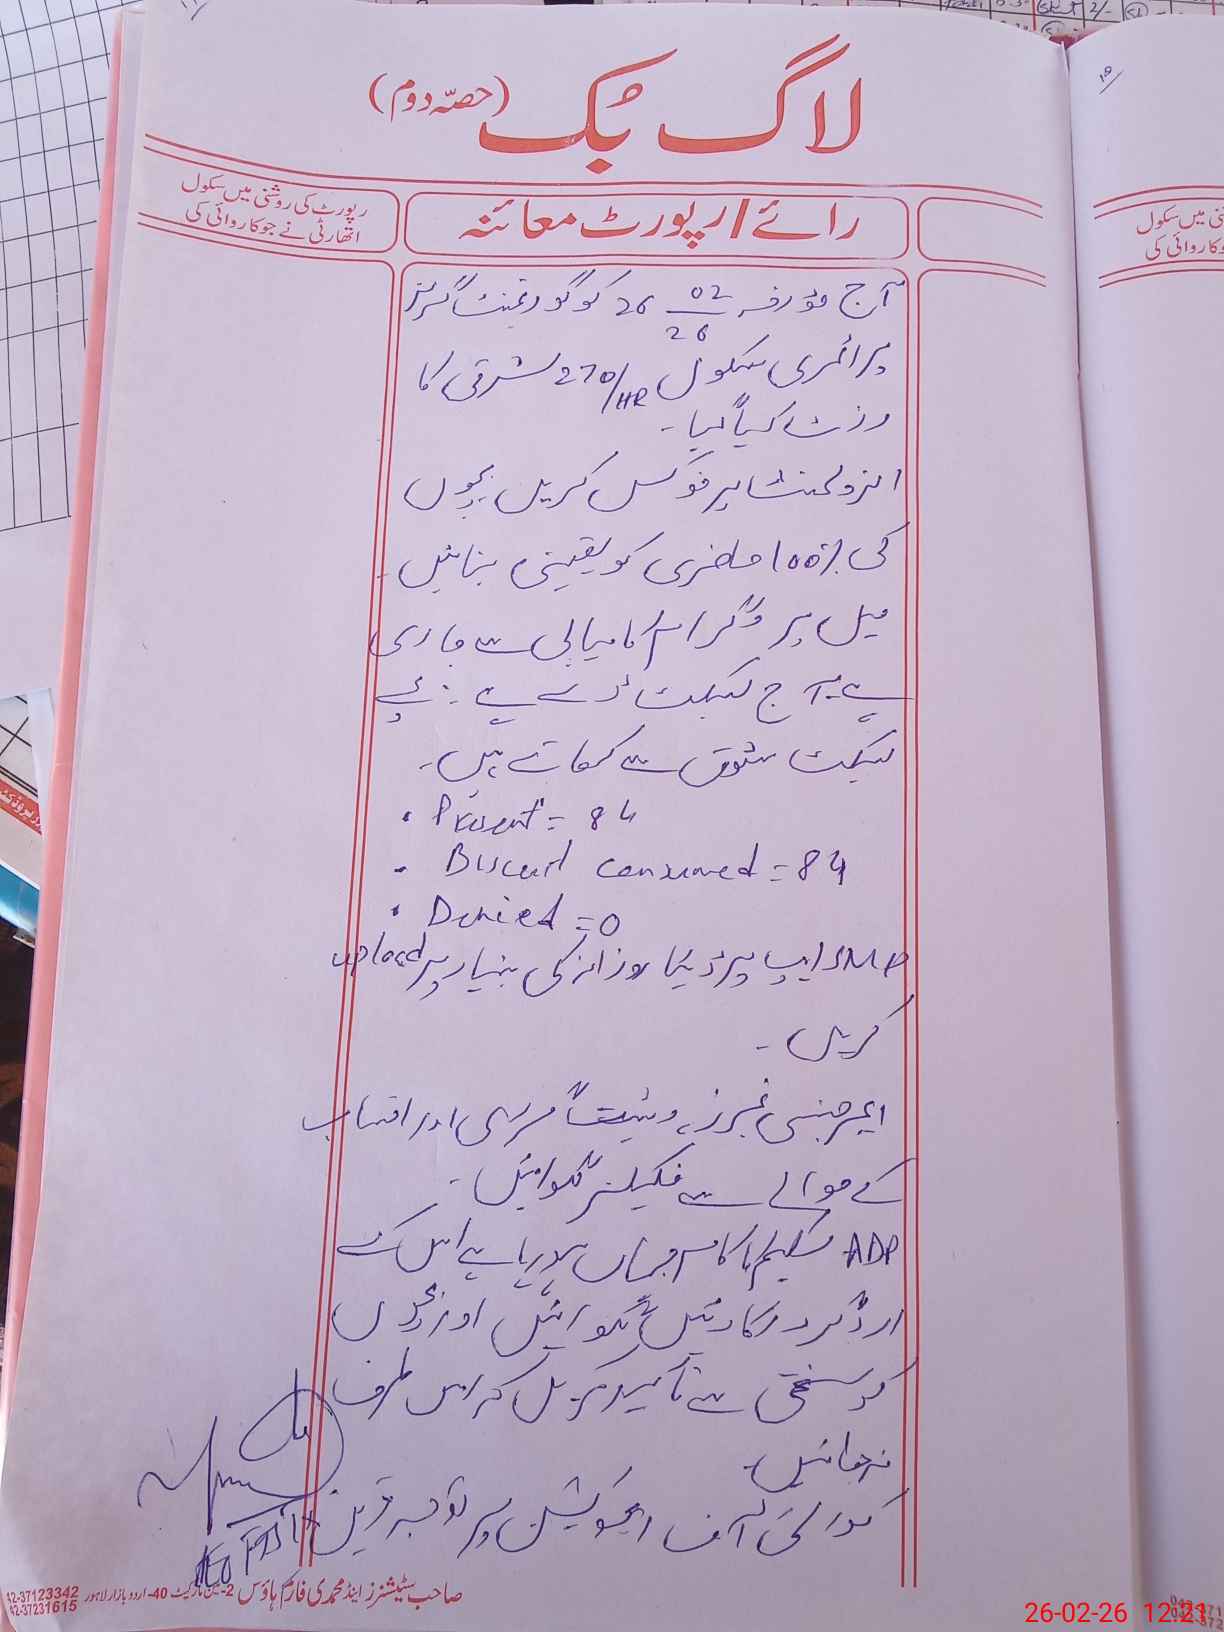 لاگ بُک (حصّہ دوم)
رائے/رپورٹ معائنہ
رپورٹ کی روشنی میں سکول
اتھارٹی نے جو کاروائی کی
آج مورخہ 26-02-26 کو گورنمنٹ گرلز
پرائمری سکول 270/HR شرقی کا
وزٹ کیا گیا۔
انرولمنٹ پر فوکس کریں بچوں
کی 100% حاضری کو یقینی بنائیں۔
میل پروگرام کامیابی سے جاری
ہے۔ آج بسکٹ ڈے ہے۔ بچے
بسکٹ شوق سے کھاتے ہیں۔
• Present = 84
• Biscuit consumed = 84
• Denied = 0
SMP ایپ پر ڈیٹا روزانہ کی بنیاد پر upload
کریں۔
ایمرجنسی نمبرز، اور
کے حوالے سے فلیکسز لگوائیں۔
ADP سکیم کا کام جہاں ہو رہا ہے اس کے
ارد گرد رکاوٹیں لگوائیں اور بچوں
کو سختی سے تاکید کریں کہ اس طرف
نہ جائیں۔
کوالٹی آف ایجوکیشن پر توجہ دیں
AEO
صاحب سٹیشنرز اینڈ محمدی فارم ہاؤس 2- مین مارکیٹ 40- اردو بازار لاہور
42-37123342
42-37231615
26-02-26 12:21